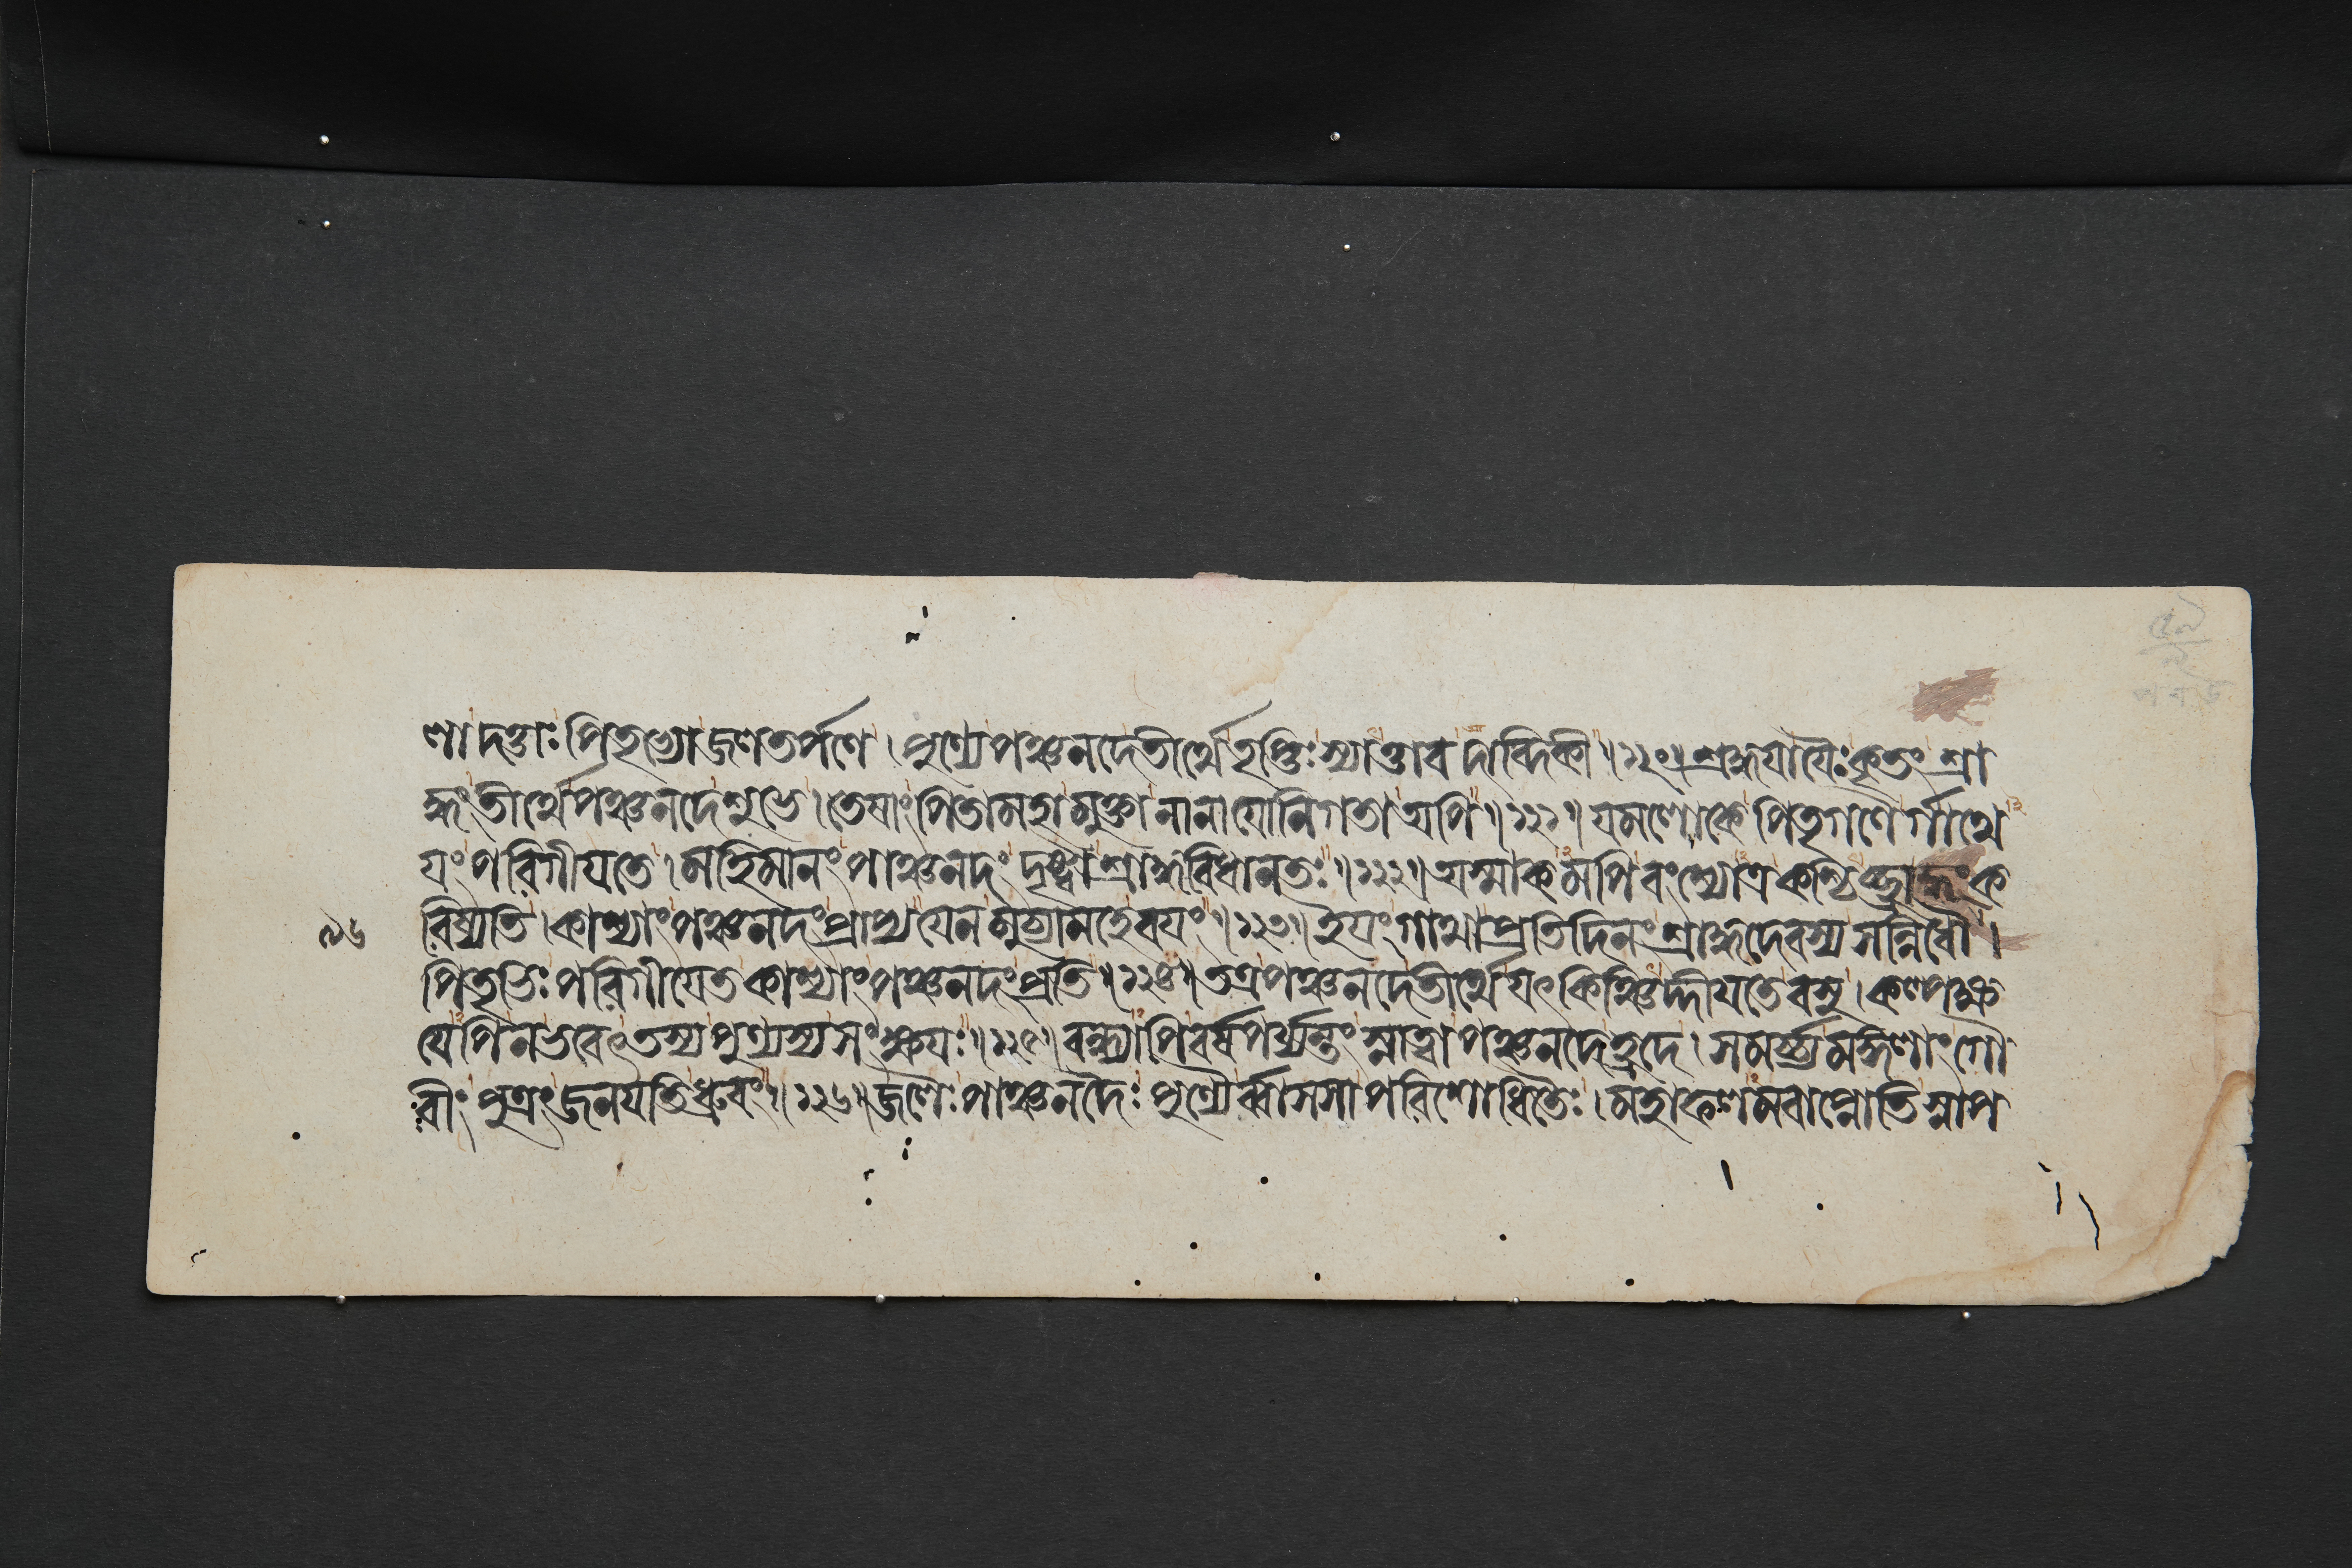 লা দত্তাঃ পিতৃভ্যো জলতর্পণে । পুণ্যে পঞ্চনদে তীর্থে তৃপ্তিঃ স্যাত্তাবদাব্দিকী ॥ ১২০ ॥ শ্রদ্ধযা যৈঃ কৃতং শ্রা
দ্ধং তীর্থে পঞ্চনদে শুভে । তেষাং পিতামহা মুক্তা নানাযোনিগতা অপি ॥ ১২১ ॥ যমলোকে পিতৃগণৈর্গাথে
যং পরিগীযতে । মহিমানং পাঞ্চনদং দৃষ্ট্বা শ্রাদ্ধবিধানতঃ ॥ ১২২ ॥ অস্মাকমপি বংশ্যোত্র কশ্চিচ্ছ্রাদ্ধং ক
৯৬ রিষ্যতি । কাশ্যাং পঞ্চনদং প্রাপ্য যেন মুচ্যামহে বযং ॥ ১২৩ ॥ ইযং গাথা প্রতিদিনং শ্রাদ্ধদেবস্য সন্নিধৌ ।
পিতৃভিঃ পরিগীযেত কাশ্যাং পঞ্চনদং প্রতি ॥ ১২৪ ॥ তত্র পঞ্চনদে তীর্থে যৎ কিঞ্চিদ্দীযতে বসু । কল্পক্ষ
যেপি ন ভবেৎ তস্য পুণ্যস্য সংক্ষযঃ ॥ ১২৫ ॥ বন্ধ্যাপি বর্ষপর্য্যন্তং স্নাত্বা পঞ্চনদে হ্রদে । সমর্চ্চ্য মঙ্গলাং গৌ
রীং পুত্রং জনযতি ধ্রুবং ॥ ১২৬ ॥ জলৈঃ পাঞ্চনদৈঃ পুণ্যৈর্ব্বাসসা পরিশোধিতৈঃ । মহাফলমবাপ্নোতি স্নাপ